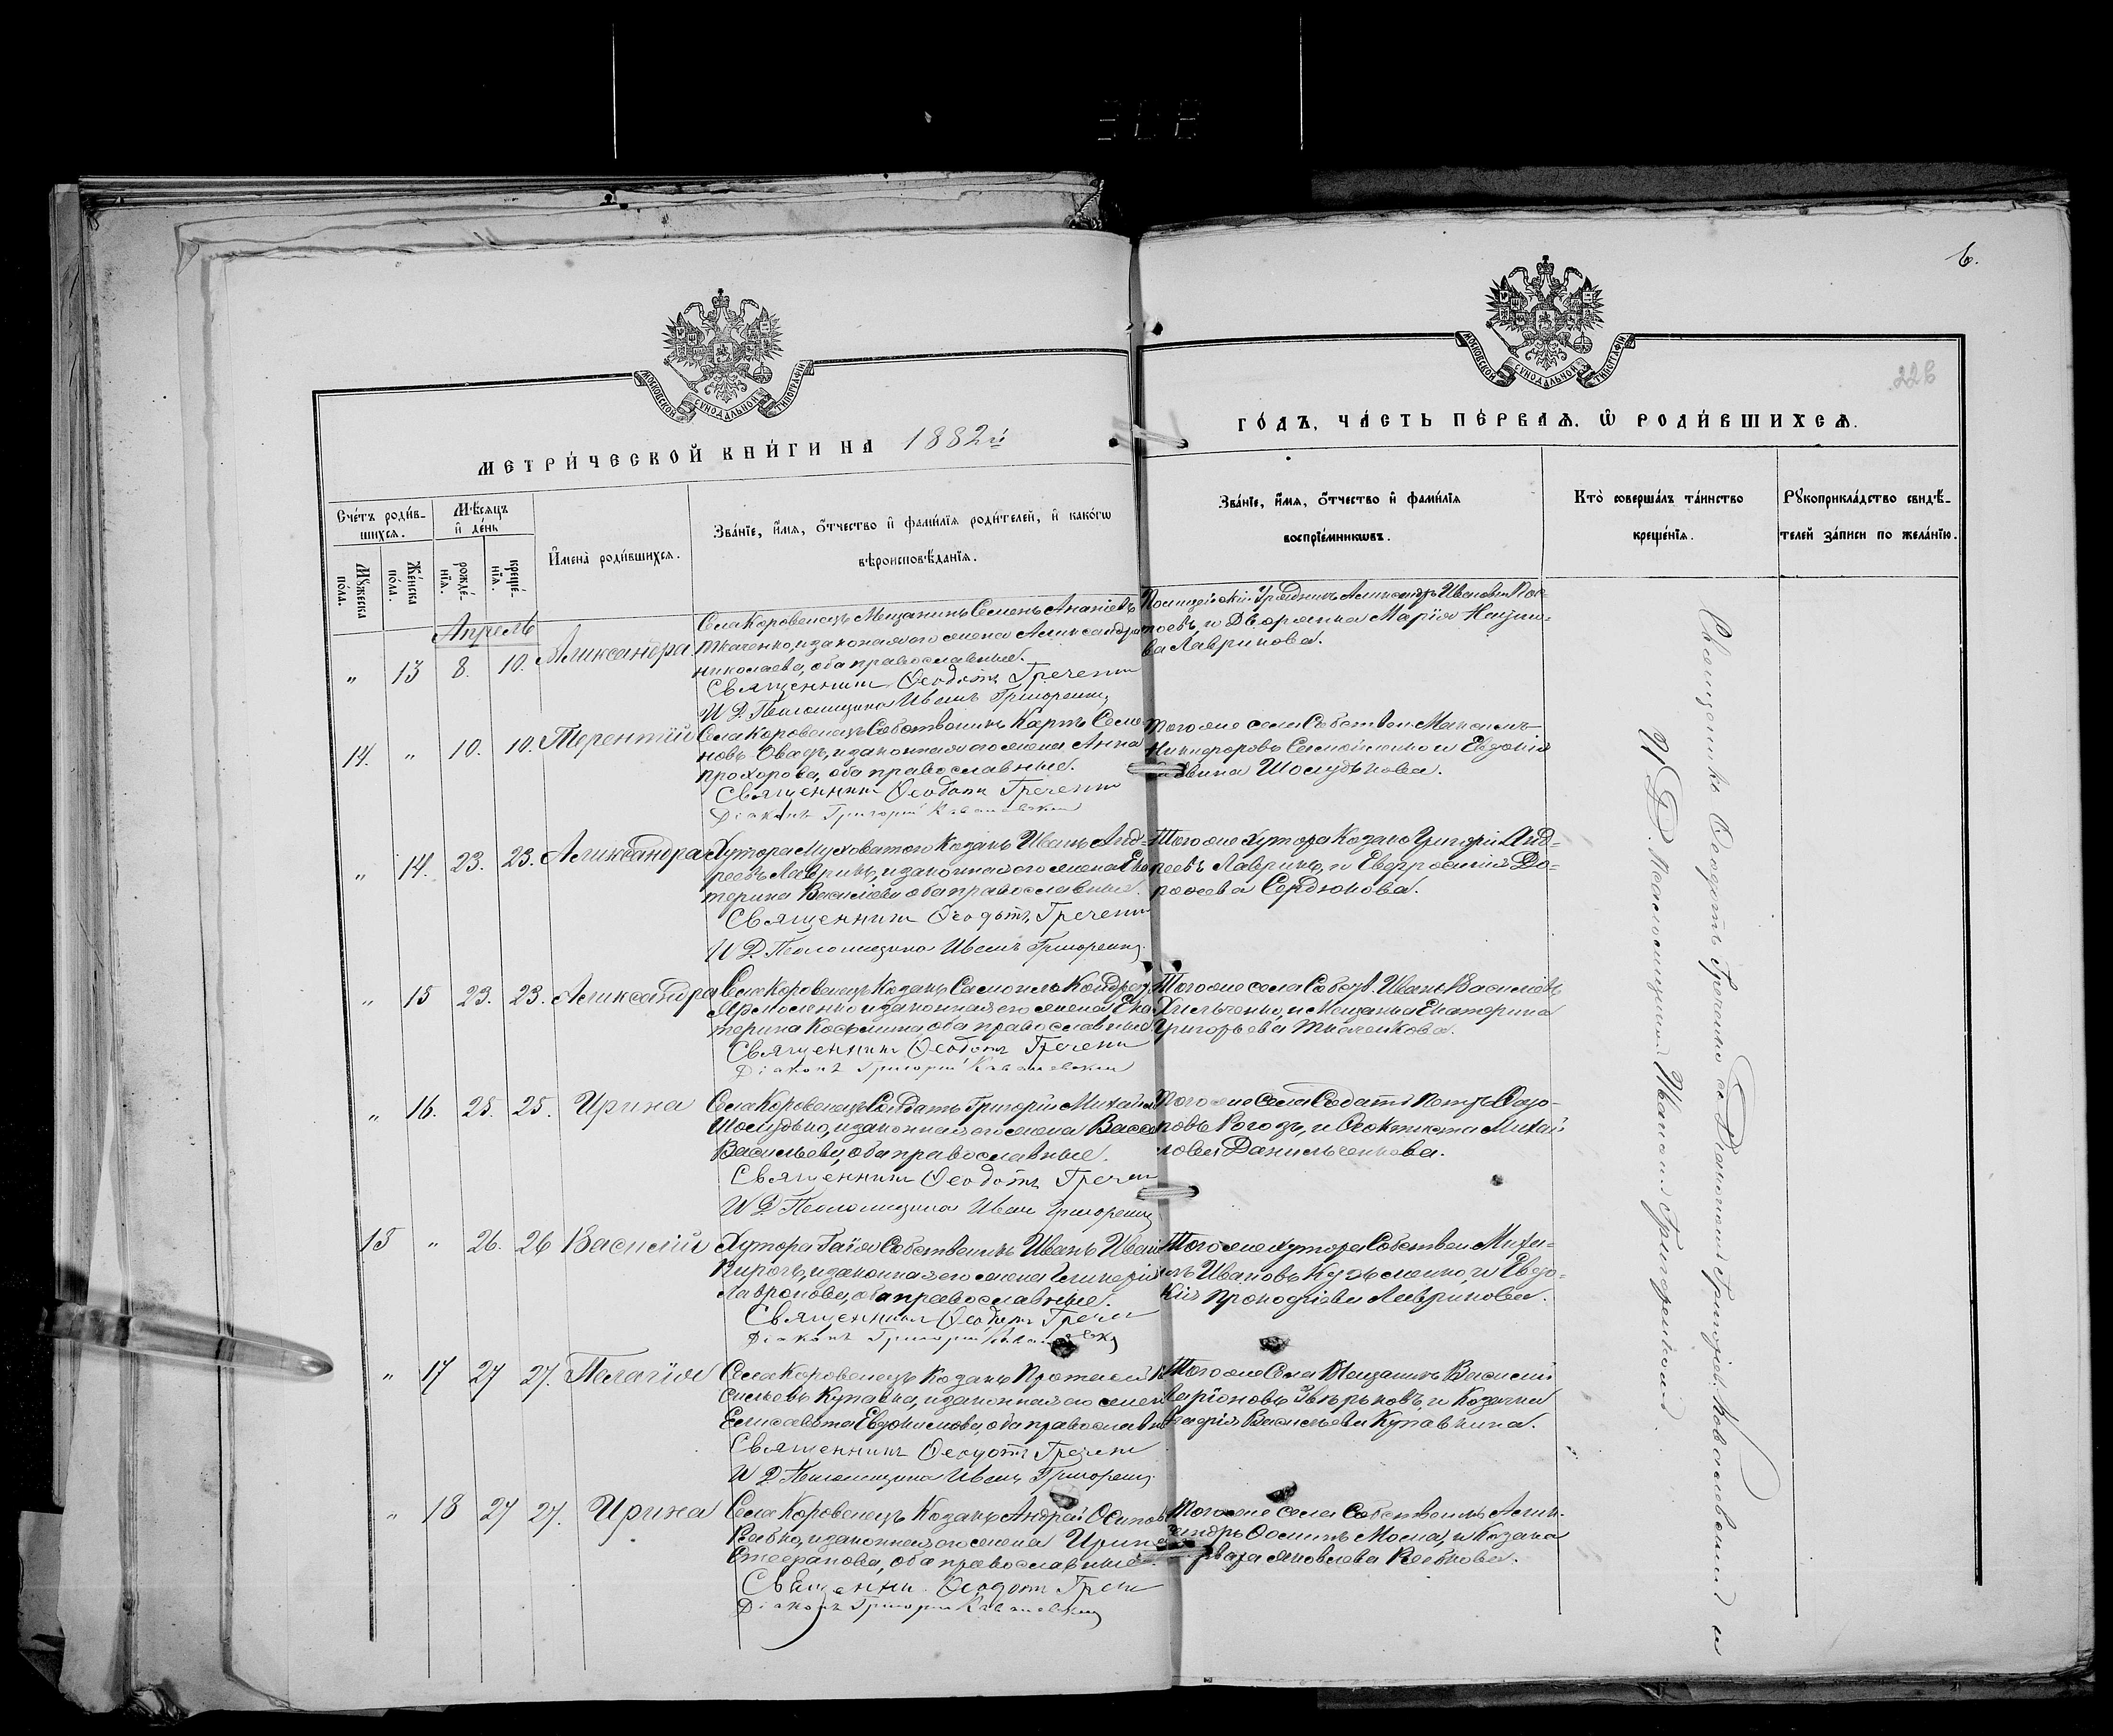 6.
226
МОСКОВСКОЙ СѴНОДАЛЬНОЙ ТИПОГРАФІИ
МОСКОВСКОЙ СѴНОДАЛЬНОЙ ТИПОГРАФІИ
МЕТРИ́ЧЕСКОЙ КНИ́ГИ НА 1882й
ГО́ДЪ, ЧА́СТЬ ПЕ́РВАѦ, Ѿ РОДИ́ВШИХСѦ.
Сче́тъ роди́в-
шихсѧ.
Мꙋ́жеска по́ла.
Же́нска по́ла.
Мѣ́сѧцъ
и҆ де́нь
рожде́-
нїѧ.
креще́-
нїѧ.
И҆мена̀ роди́вшихсѧ.
Зва́нїе, и҆́мѧ, ѻ҆́тчество и҆ фами́лїѧ роди́телей, и҆ како́гѡ
вѣроисповѣ́данїѧ.
Зва́нїе, и҆́мѧ, ѻ҆́тчество и҆ фами́лїѧ
воспрїе́мникѡвъ.
Кто̀ соверша́лъ та́инство
креще́нїѧ.
Рꙋкоприкла́дство свидѣ́-
телей за́писи по жела́нїю.
Апрель
" 13 8. 10. Александра.
Села Коровенецъ Мещанинъ Семенъ Ананіевъ
Ткаченко, и законная его жена Александра
Николаева, оба православные.
Священникъ Ѳеодотъ Гречен
И. Д. Псаломщика Иванъ Григорен
Полицейскій Урядникъ Александръ Ивановъ
и Дворянка Марія
ва Лавринова.
14. " 10. 10. Терентій
Села Коровенецъ Собственникъ Карпъ Семе-
новъ Овадъ, и законная его жена Анна
Прохорова, оба православные.
Священникъ Ѳеодотъ Гречен
Діаконъ Григорій
Того же села Собствен Максимъ
Никифоровъ Самойленко и Евдокія
Шолудькова.
" 14. 23. 23. Александра
Хутора Муховатого Козакъ Иванъ Анд-
реевъ Лавринъ, и законная его жена Ека
терина Василіева оба православные.
Священникъ Ѳеодотъ Гречен
И. Д. Псаломщика Иванъ Григорен
Того же Хутора Козакъ Григорій Анд-
реевъ Лавринъ, и Евфросинія До-
рофеева Сердюкова.
" 15 23. 23. Александра
Села Коровенецъ Козакъ Самоилъ Кондрат
Ярмоленко и законная его жена Ека
терина Косьмина, оба православные.
Священникъ Ѳеодотъ Гречен
Діаконъ Григорій
Того же села Собст. Иванъ Василіевъ
Хильченко, и Мещанка Екатерина
Григорьева Ткаченкова.
" 16. 25. 25. Ирина
Села Коровенецъ Солдатъ Григорій Михайл
Шолудько, и законная его жена Васса
Васильева, оба православные.
Священникъ Ѳеодотъ Гречен
И. Д. Псаломщика Иван Григорен
Того же Села Солдатъ Петръ
повъ Рогозъ, и Ѳеоктиста Михай
лова Данильченкова.
15 " 26. 26 Василій
Хутора Гая Собственникъ Иванъ Иван
Кирочъ, и законная его жена Гликерія
Лавронова, оба православные.
Священникъ Ѳеодотъ Гречен
Діаконъ Григорій
Того же хутора Собствен Миха-
илъ Ивановъ Кузьменко, и Евдо-
кія Прокофіева Лавринова.
" 17 27 27. Пелагія
Села Коровенецъ Козакъ Протасій Ва
сильевъ Купавка, и законная его жена
Елисавета Евдокимова, оба православн
Священникъ Ѳеодотъ Гречен
И. Д. Псаломщика Иванъ Григорен
Того же Села Мещанинъ Василій
Иларіоновъ Звѣрьковъ, и Козачка
Агафія Васильева Купавкина.
" 18 27 27. Ирина
Села Коровенецъ Козакъ Андрей Осиповъ
Рябко, и законная его жена Ирина
Стефанова, оба православные.
Священни Ѳеодотъ Греч
Діаконъ Григорій
Того же села Собственникъ Алек-
сандръ Мосла, и Козачка
Варвара Яковлева Рябкова.
Священникъ Ѳеодотъ Гречина съ Діакономъ Григоріемъ Ковалевскимъ и
И. Д. Псаломщикомъ Иваномъ Григоровичемъ